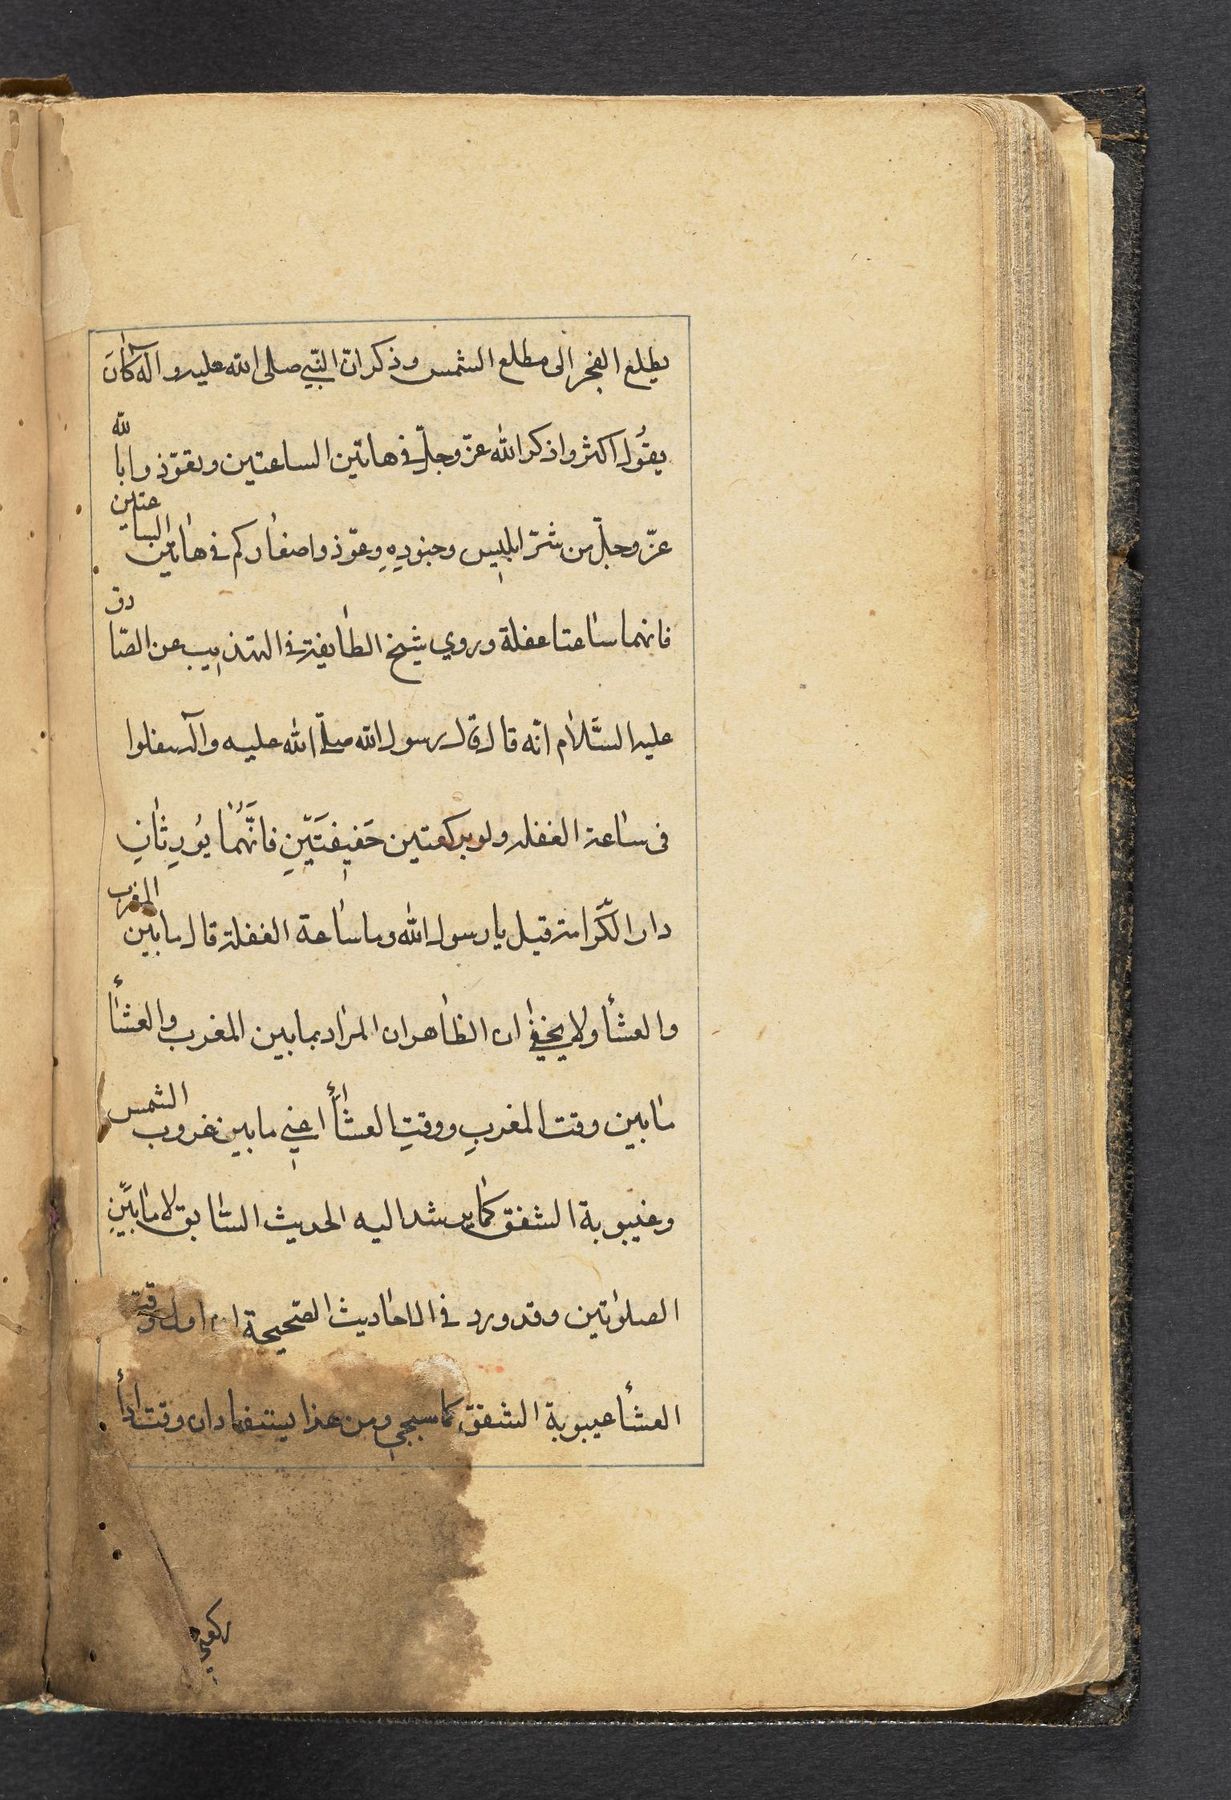 يطلع الفجر الى مطلع الشمس وذكر انّ النّبي صلى الله عليه وآله كانَ
يقُول اكثروا ذكر الله عزّ وجلّ في هاتين الساعتين وتعوّذوا بالله
عزّ وجلّ من شرّ ابليس وجنودِهِ وعوّذوا صغاركم في هاتين الساعتين
فانهما ساعتا غفلة وروي شيخ الطايفة في التهذيب عن الصّادق
عليه السَّلام انّه قال قال رسول الله صلّى الله عليه وآله تنفلوا
في ساعة الغفله ولو بركعتين خَفيفتَيّنِ فانَّهُمٰا يُورِثانِ
دار الكّرامة قيل يا رسول الله وما ساعة الغفلة قال ما بين المغرب
والعشأ ولا يخفى ان الظاهر ان المراد بما بين المغرب والعشأ
ما بين وقت المغربِ ووقتِ العشأ اعني ما بين غروب الشمس
وغيبوبة الشفق كما يرشد اليه الحديث السّابق لا ما بَيّنِ
الصلوٰتين وقد ورد في الاحاديث الصّحيحة ان اول وقت
العشأ غيبوبة الشفقِ كما سيجي ومن هذا يستفاد ان وقت اداأ
ركعتي